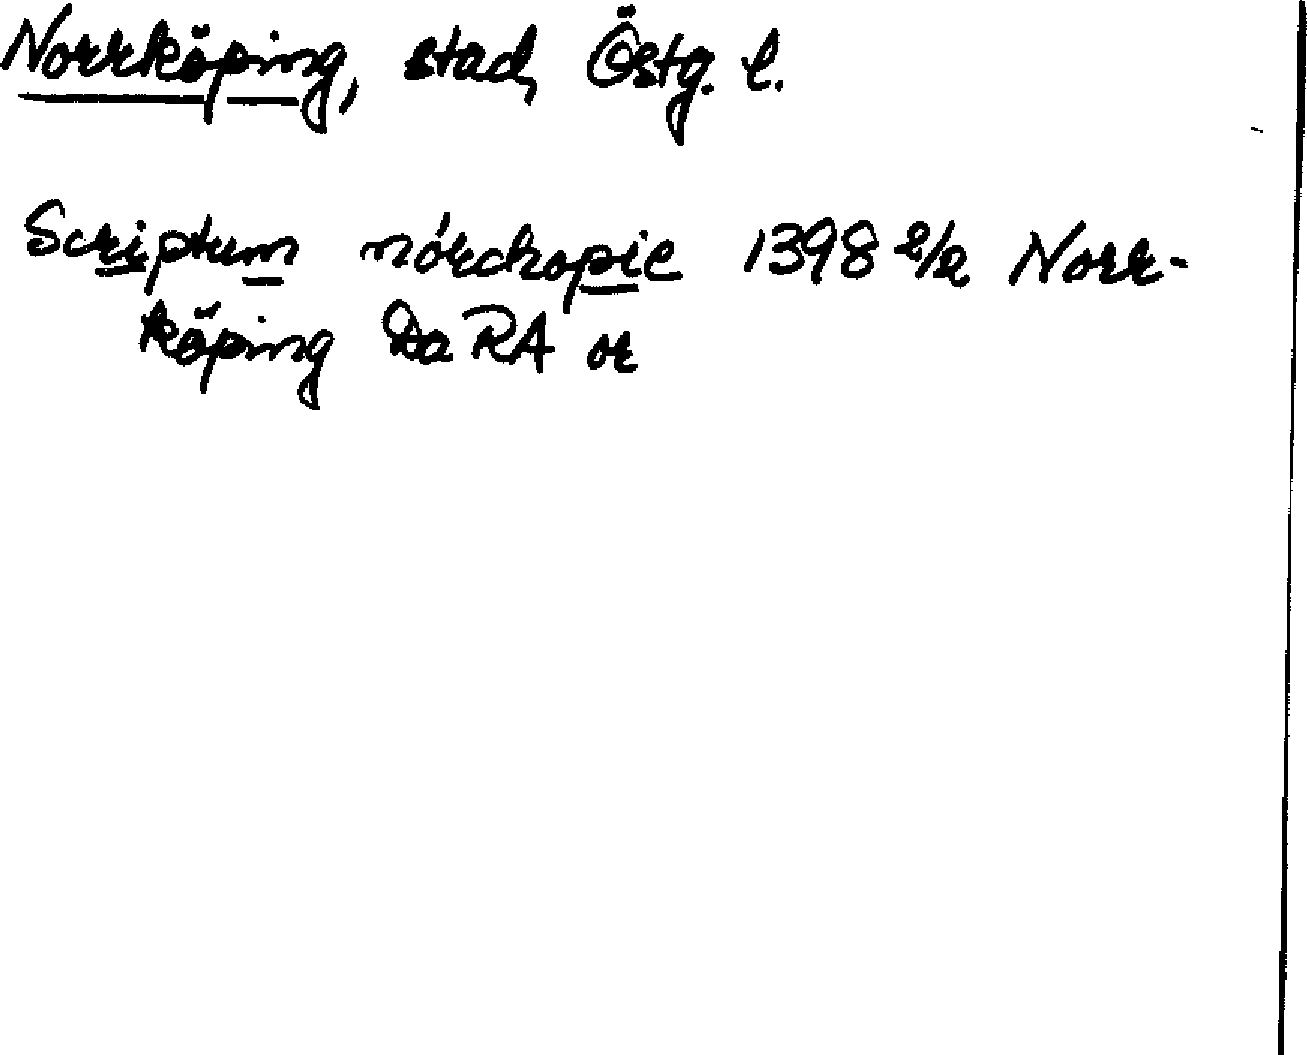 Norrköping, stad, Östg. l.
Scriptum nórchopie 1398 2/2 Norr-
köping Da RA or